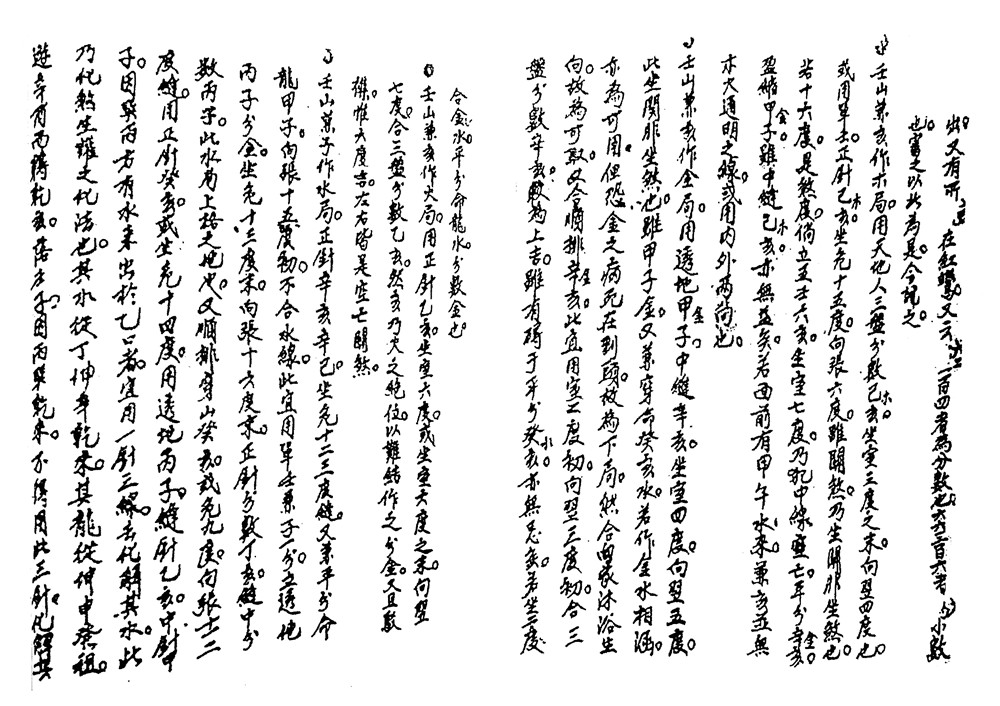 出又有所 在紅鸞又云 一百四者為分數也六六三百六者 小數
也審之以此為是今現之
壬山兼亥作木局用天地人三盤分數己亥坐室三度之末向翌四度也
或用單壬正針己亥坐危十五度向張六度雖關煞乃坐關非坐煞也
若十六度是煞度倘立五壬六亥坐室七度乃犯中線空亡平分辛亥
盈縮甲子雖中縫己亥亦無益矣若面前有甲午水來兼亥並無
木火通明之線或用內外兩向也
壬山兼亥作金局用透地甲子中縫辛亥坐室四度向翌五度
此坐關非坐煞也雖甲子金又兼穿命癸亥水若作金水相涵
亦為可用但恐金之病死在到頭故為下局然合曲家沐浴生
向故為可取又合順排辛亥此宜用室二度初向翌三度初合三
盤分數辛亥故為上吉雖有碍于平分癸亥亦無忌矣若坐三度
合金水平分命龍水分數金也
壬山兼亥作火局用正針乙亥坐室六度或坐室六度之末向翌
七度合三盤分數乙亥然亥乃火之絕位以難結作之分金又且數
雜惟六度言左右皆是空亡關煞
壬山兼子作水局正針辛亥辛巳坐危十二三度縫又兼平分命
龍甲子向張十五度初不合水線此宜用單壬兼子一分立透地
丙子分金坐危十三度末向張十六度末正針分數丁亥縫中分
數丙子此水局上格之地也又順排穿山癸亥或危九度向張十二
度縫用正針癸亥或坐危十四度用透地丙子縫針乙亥中針甲
子因癸丙方有水來出於乙口者宜用一針三線去化解其水此
乃化煞生旺之化法也其水從丁坤辛乾來其龍從坤申癸祖
遊辛有丙轉乾亥落壬子因丙與乾來不得用此三針化解其